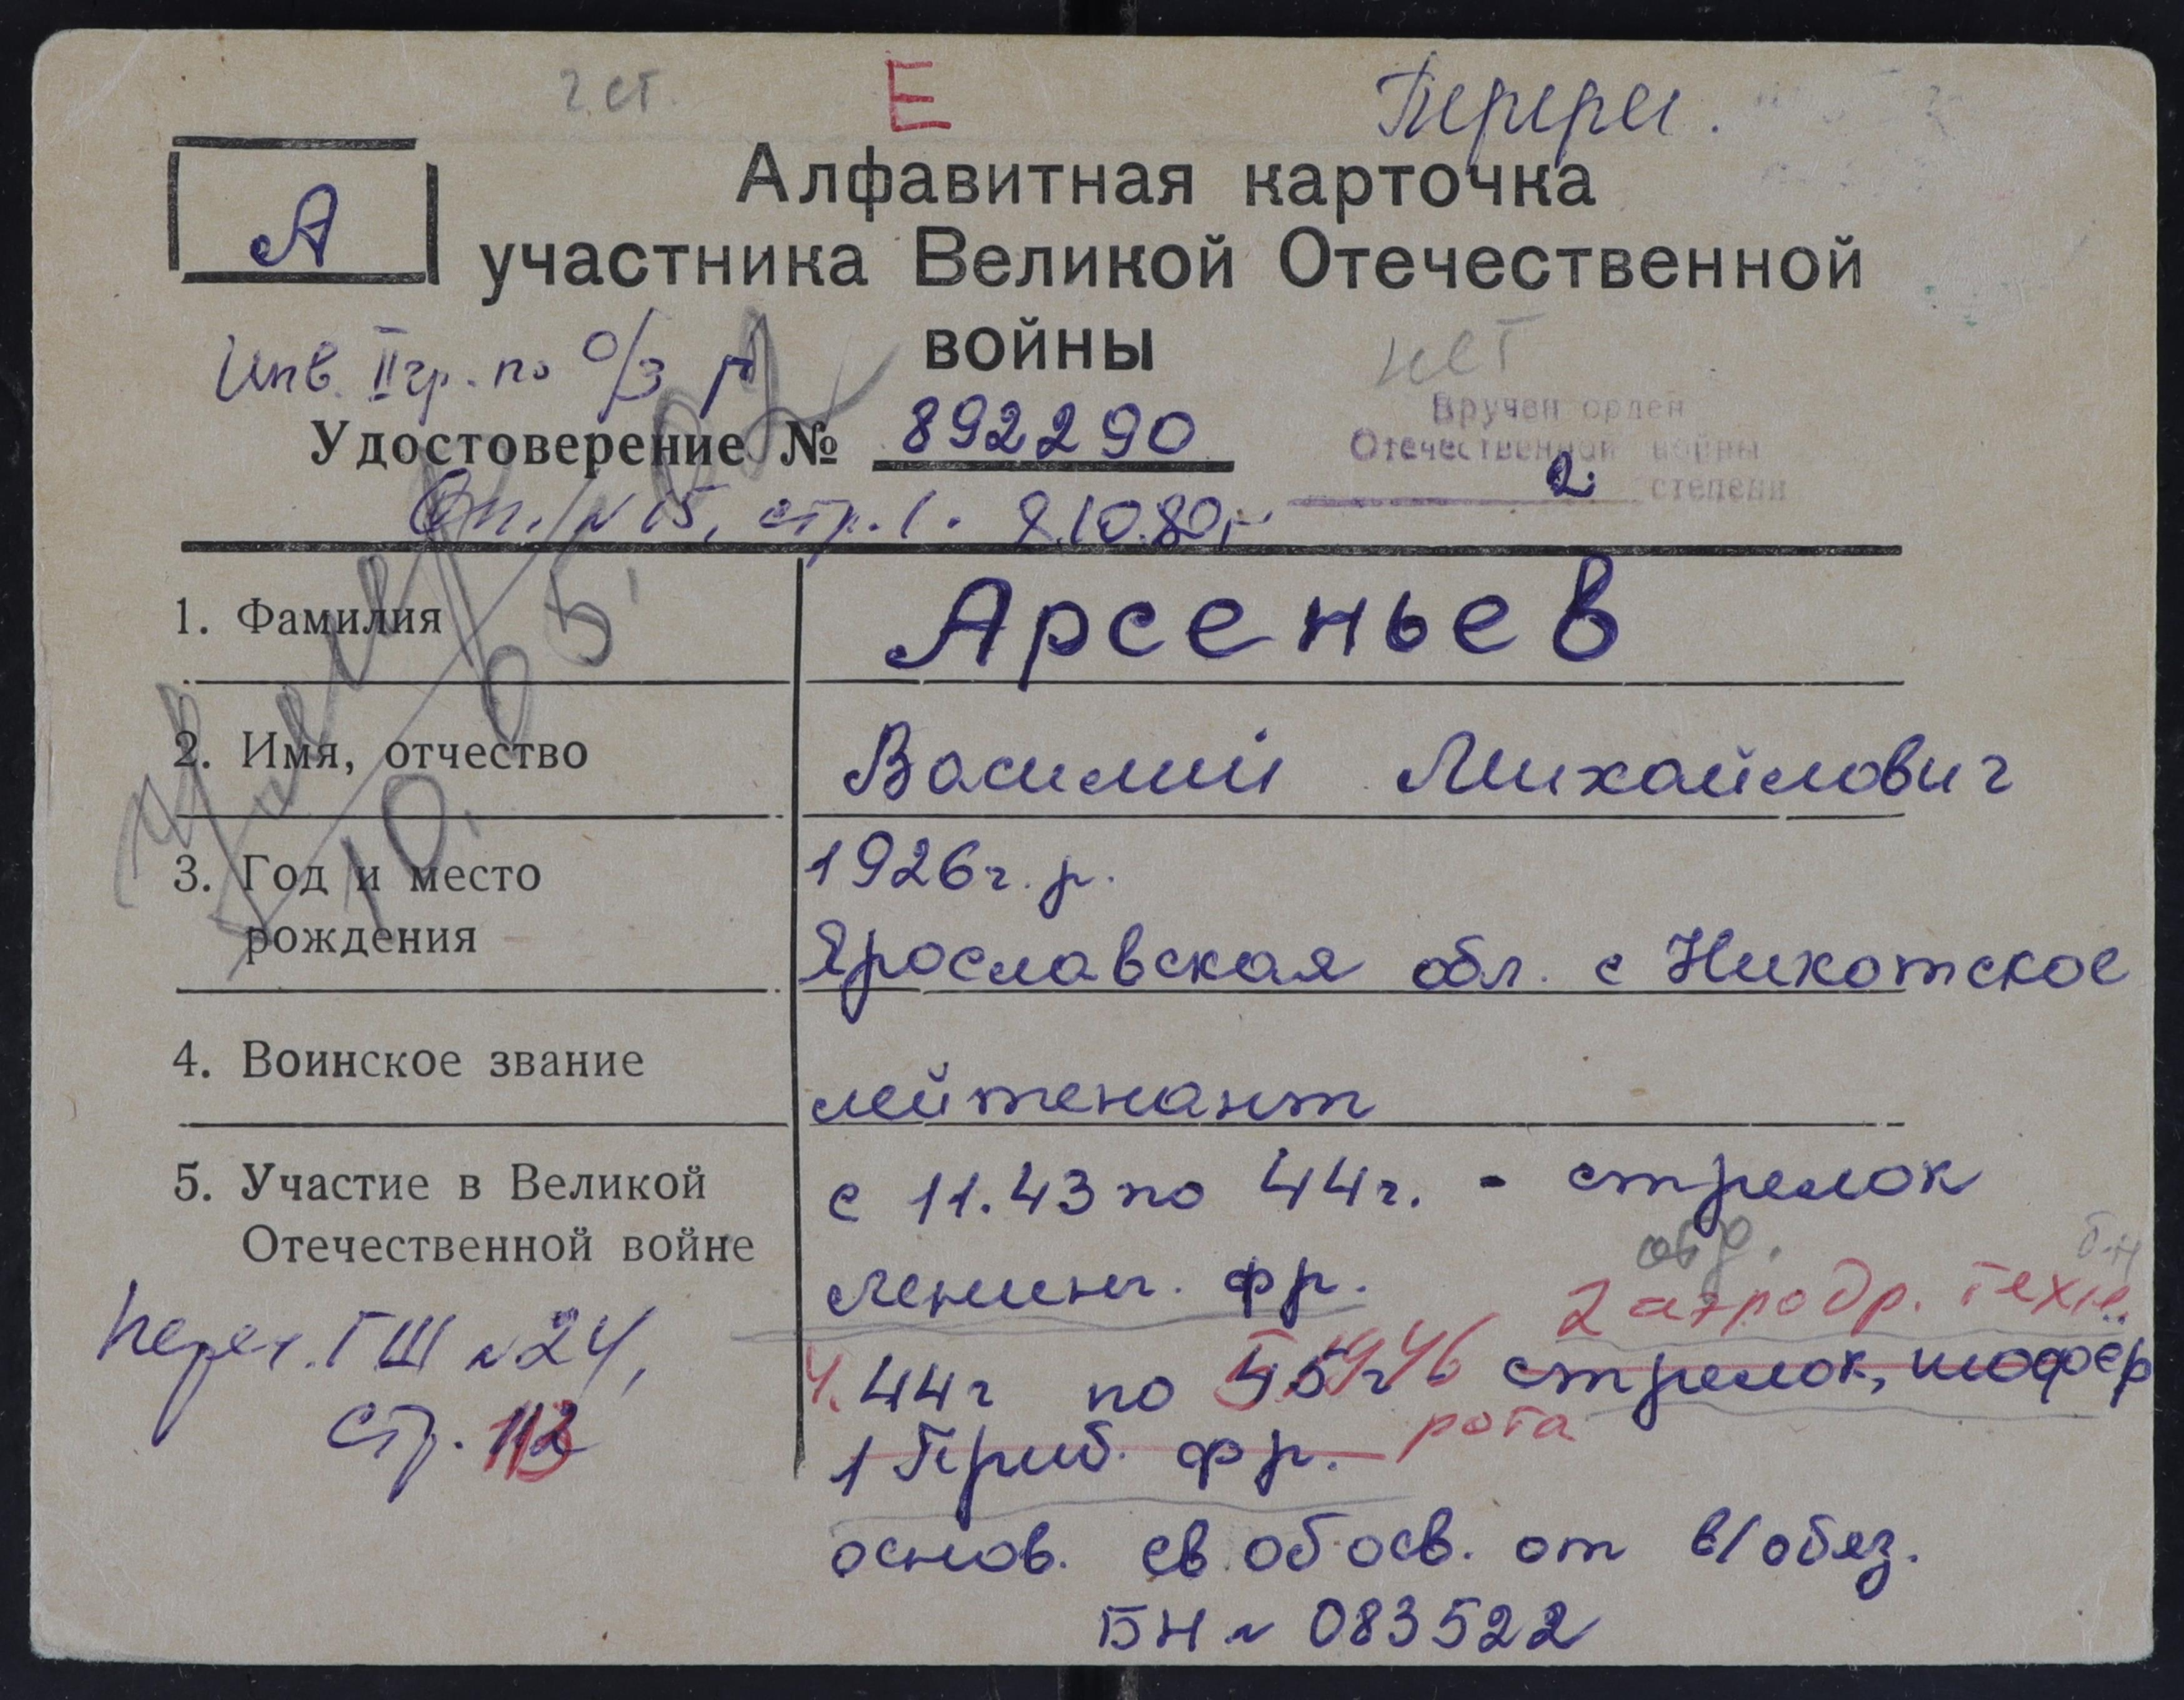 2 ст. Е Перерег.
А
Алфавитная карточка
участника Великой Отечественной
войны
Инв. II гр. по о/з
нет
Удостоверение № 892290
Вручен орден
Отечественной войны
2 степени
Оп. №15, стр. 1. 9.10.80г
1. Фамилия Арсеньев
2. Имя, отчество Василий Михайлович
3. Год и место рождения 1926 г. р.
Ярославская обл. с Никотское
4. Воинское звание лейтенант
5. Участие в Великой Отечественной войне
с 11.43 по 44 г. - стрелок
Ленинг. фр.
2 аэродр. техн.
4. 44 г по 45 г 5.1946 стрелок, шофёр
1 Приб. фр. рота
основ. св. об осв. от в/обяз.
БН № 083522
перег. ГШ №24,
стр. 113